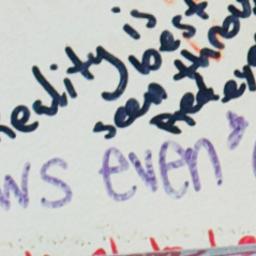 reality is
best
seen throu
Red eye
ws even